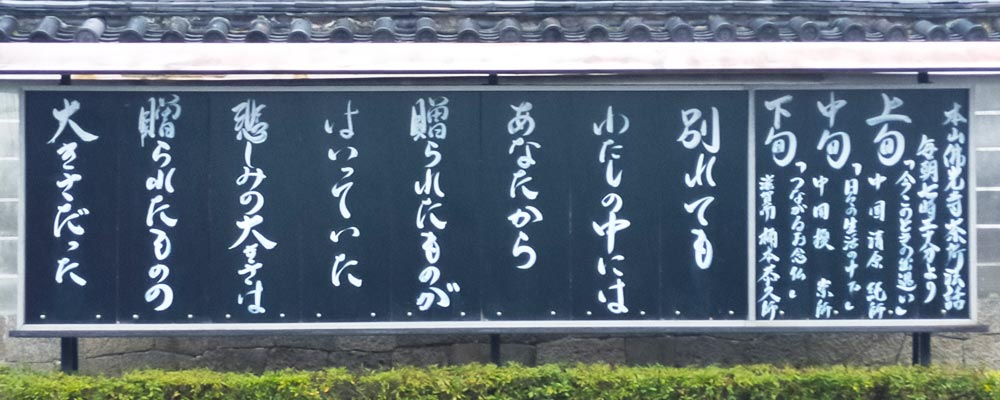 本山佛光寺茶所法話
毎朝七時三十分より
上旬「今このときの出遇い」
中国 清原
中旬「日々の生活の中で」
中国
下旬「つながるお念仏」
滋賀
別れても
わたしの中には
あなたから
贈られたものが
はいっていた
悲しみの大きさは
贈られたものの
大きさだった